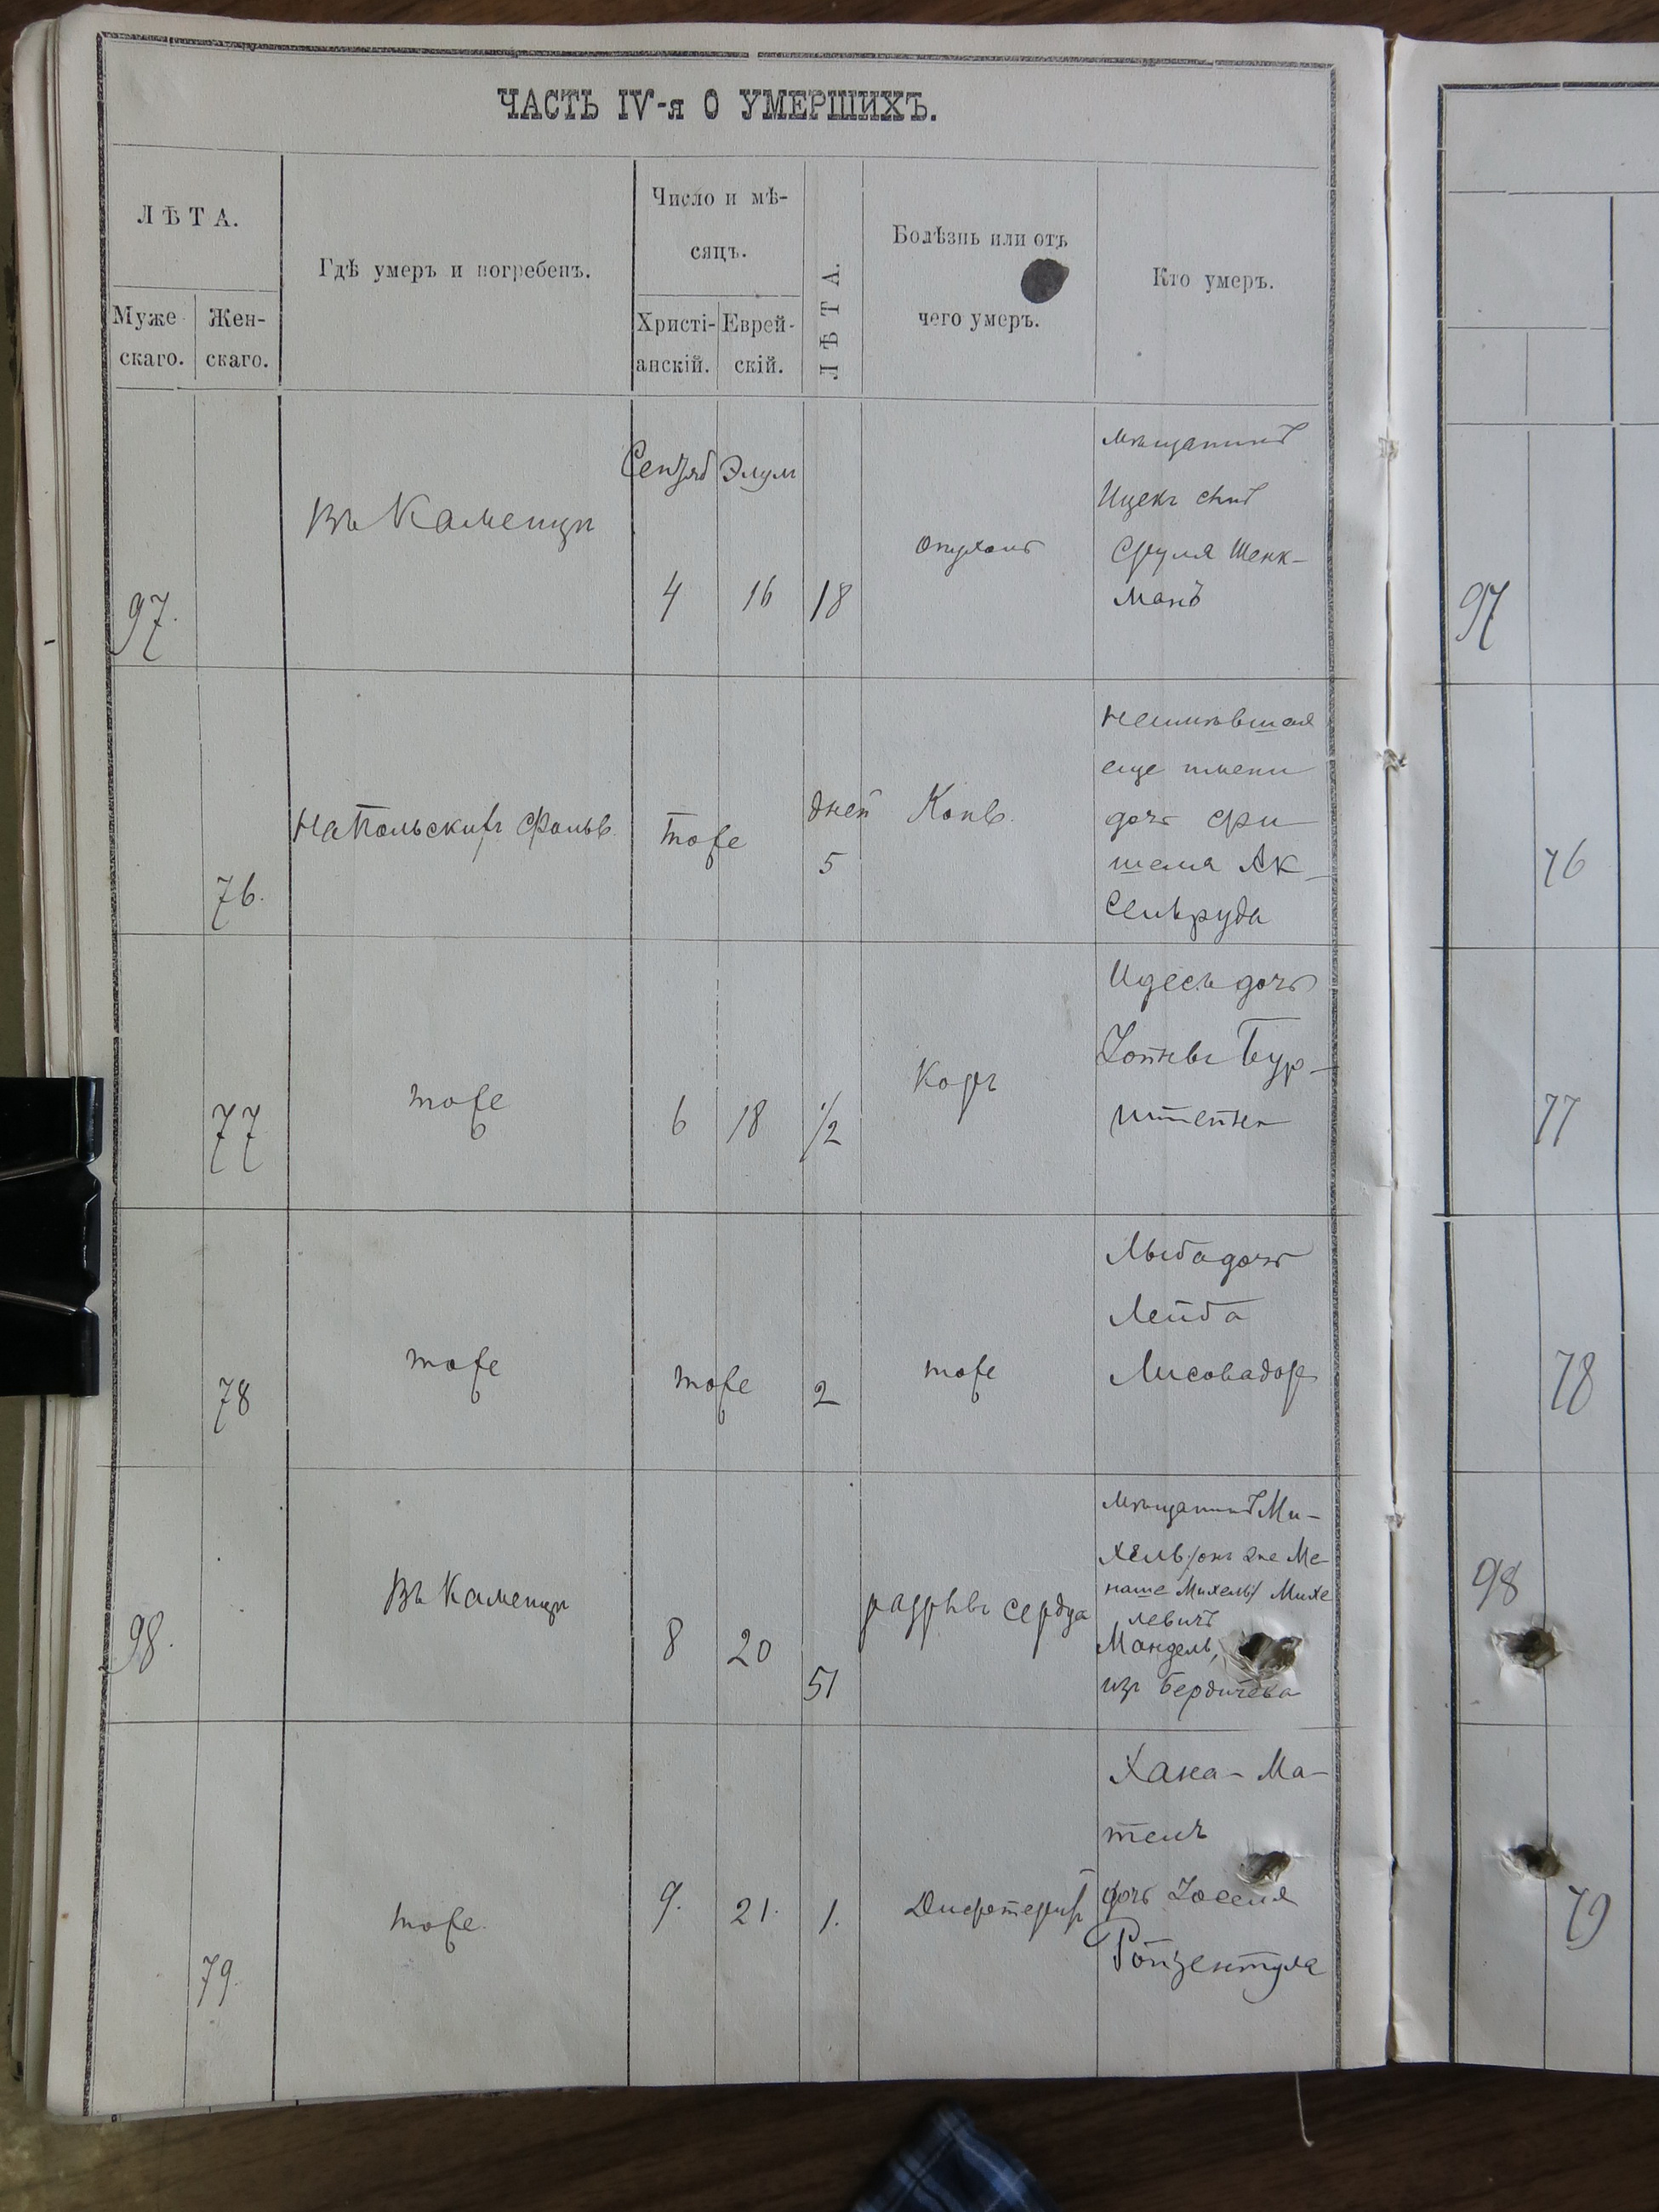 ЧАСТЬ IV-я О УМЕРШИХЪ.
ЛѢТА.
Муже-
скаго.
Жен-
скаго.
Гдѣ умеръ и погребенъ.
Число и мѣ-
сяцъ.
Христі-
анскій.
Еврей-
скій.
ЛѢТА.
Болѣзнь или отъ
чего умеръ.
Кто умеръ.
97.
Въ Каменцѣ
Сентяб
4
Элул
16
18
опухоль
мѣщанинъ
Ицекъ сынъ
Сруля Шенк-
манъ
97
76.
На Польскихъ Фольв.
тоже
дней
5
Конв.
неимѣвшая
еще имени
дочь Фи
шеля Ак-
сельруда
76
77
тоже
6
18
1/2
Корь
Идесь дочь
Бур-
штейна
77
78
тоже
тоже
2
тоже
дочь
Лейба
78
98.
Въ Каменцѣ
8
20
51
разрывъ сердца
мѣщанинъ Ми-
хель /онъ же Ме-
наше Михель/ Михе
левичъ
Мандель,
изъ Бердичева
98
79.
тоже.
9.
21.
1.
Дифтеритъ
Хана-Ма-
тель
дочь Іоселя
Ройзентула
79